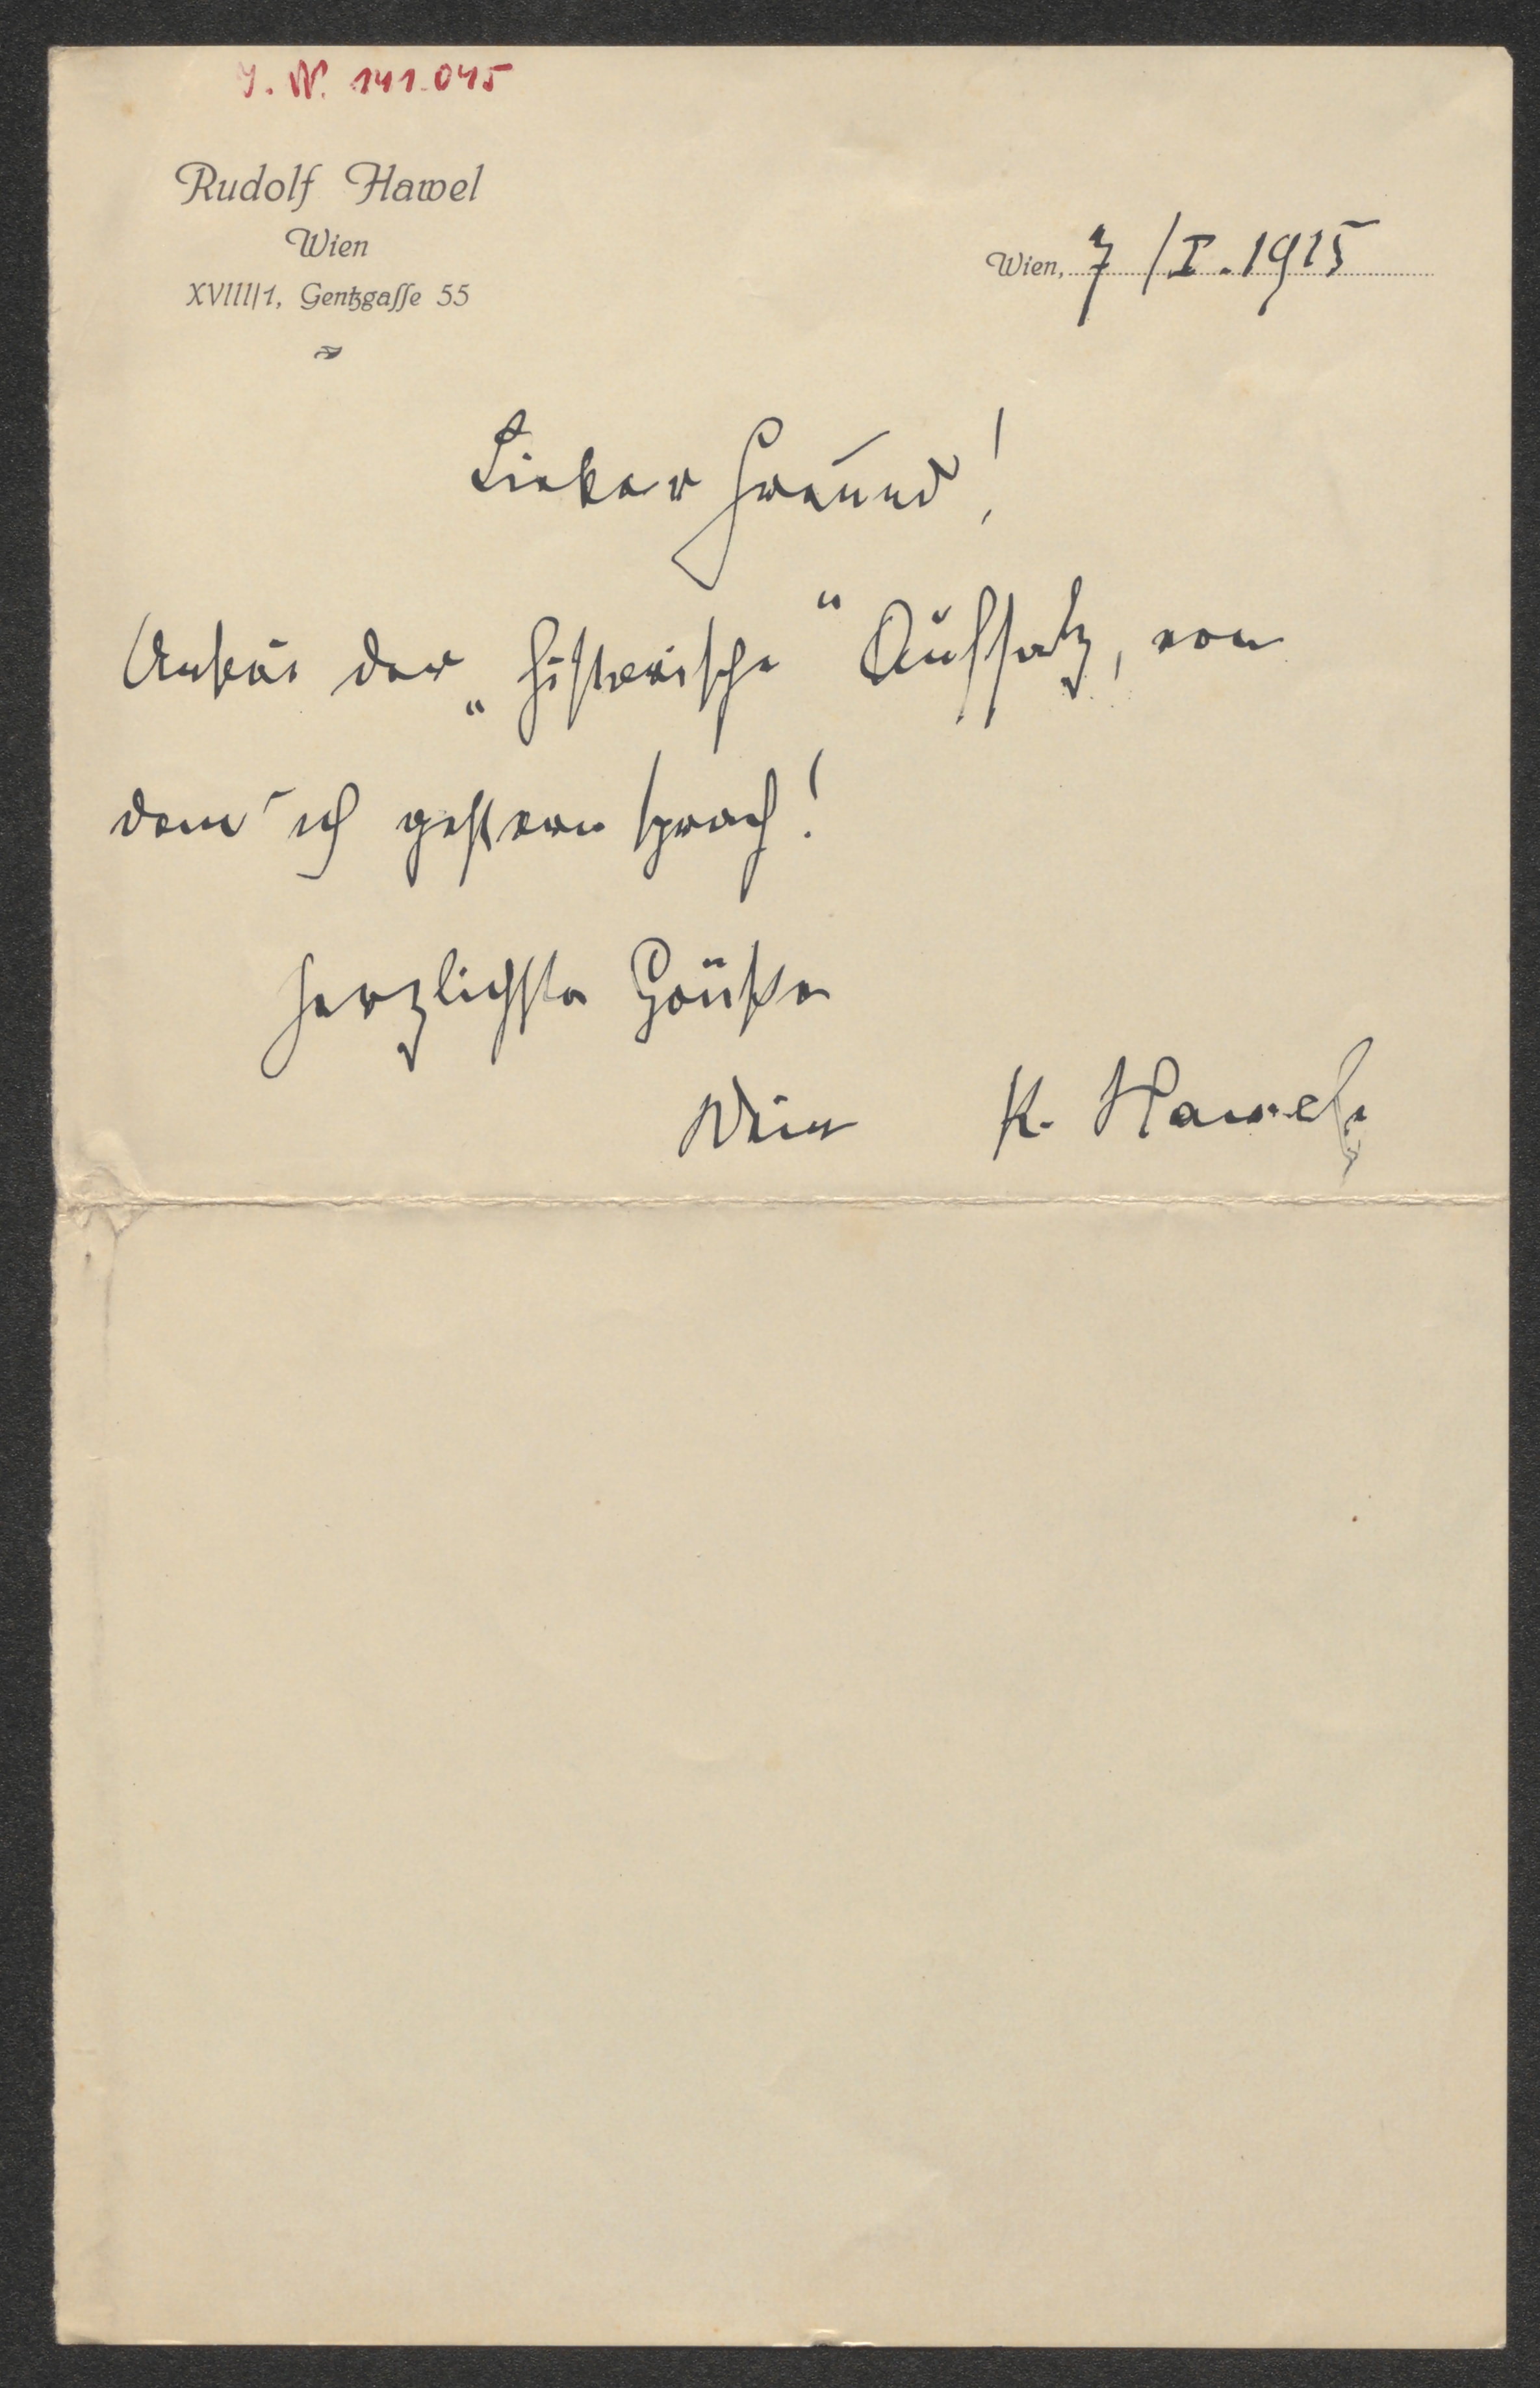 I. N. 141.045
Rudolf Hawel
Wien
XVIII/1, Gentzgaſſe 55
Wien, 7/I. 1915
Lieber Freund!
Anbei der „historische“ Aufsatz, von
dem ich gestern sprach!
Herzlichste Grüße
Dein R. Hawel